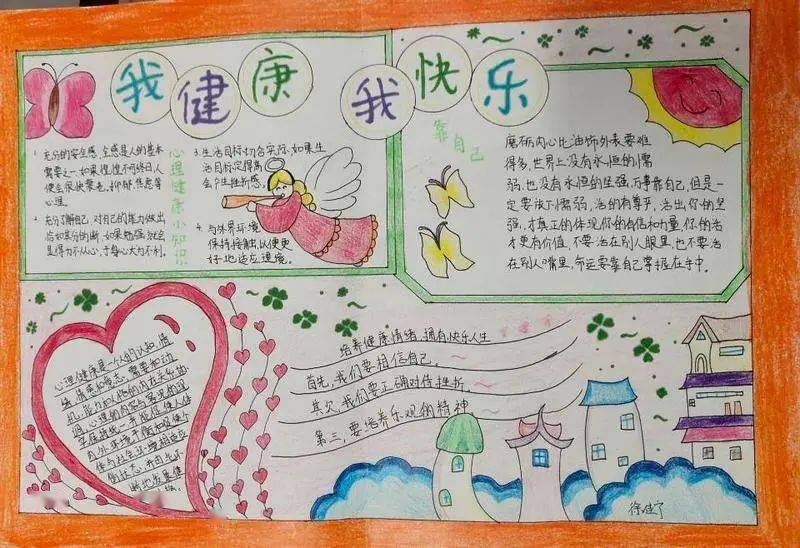 我健康 我快乐
心理健康小知识
1. 充分的安全感，全感是人的基本
需要之一，如果惶惶不可终日人
便会很快衰老，抑郁，焦虑等
心理。
2. 充分了解自己，对自己的能力做出
恰如其分的断，如果勉强就会
显得力不从心，于身心大为不利。
3. 生活目标，切合实际，如果生
活目标定得高
会产生挫折感。
4. 与外界环境
保持接触，以便更
好地适应环境。
靠自己
磨砺内心比油饰外表要难
得多，世界上没有永恒的懦
弱，也没有永恒的坚强，万事靠自己，但是一
定要放下懦弱，活的有尊严，活出你的坚
强，才真正的体现你的自信和力量，你的活
才更有价值，不要活在别人眼里，也不要活
在别人嘴里，命运要靠自己掌握在手中。
心理健康是一个人的认知，情
培养健康情绪，拥有快乐人生
首先，我们要相信自己。
其次，我们要正确对待挫折
第三，要培养乐观的精神